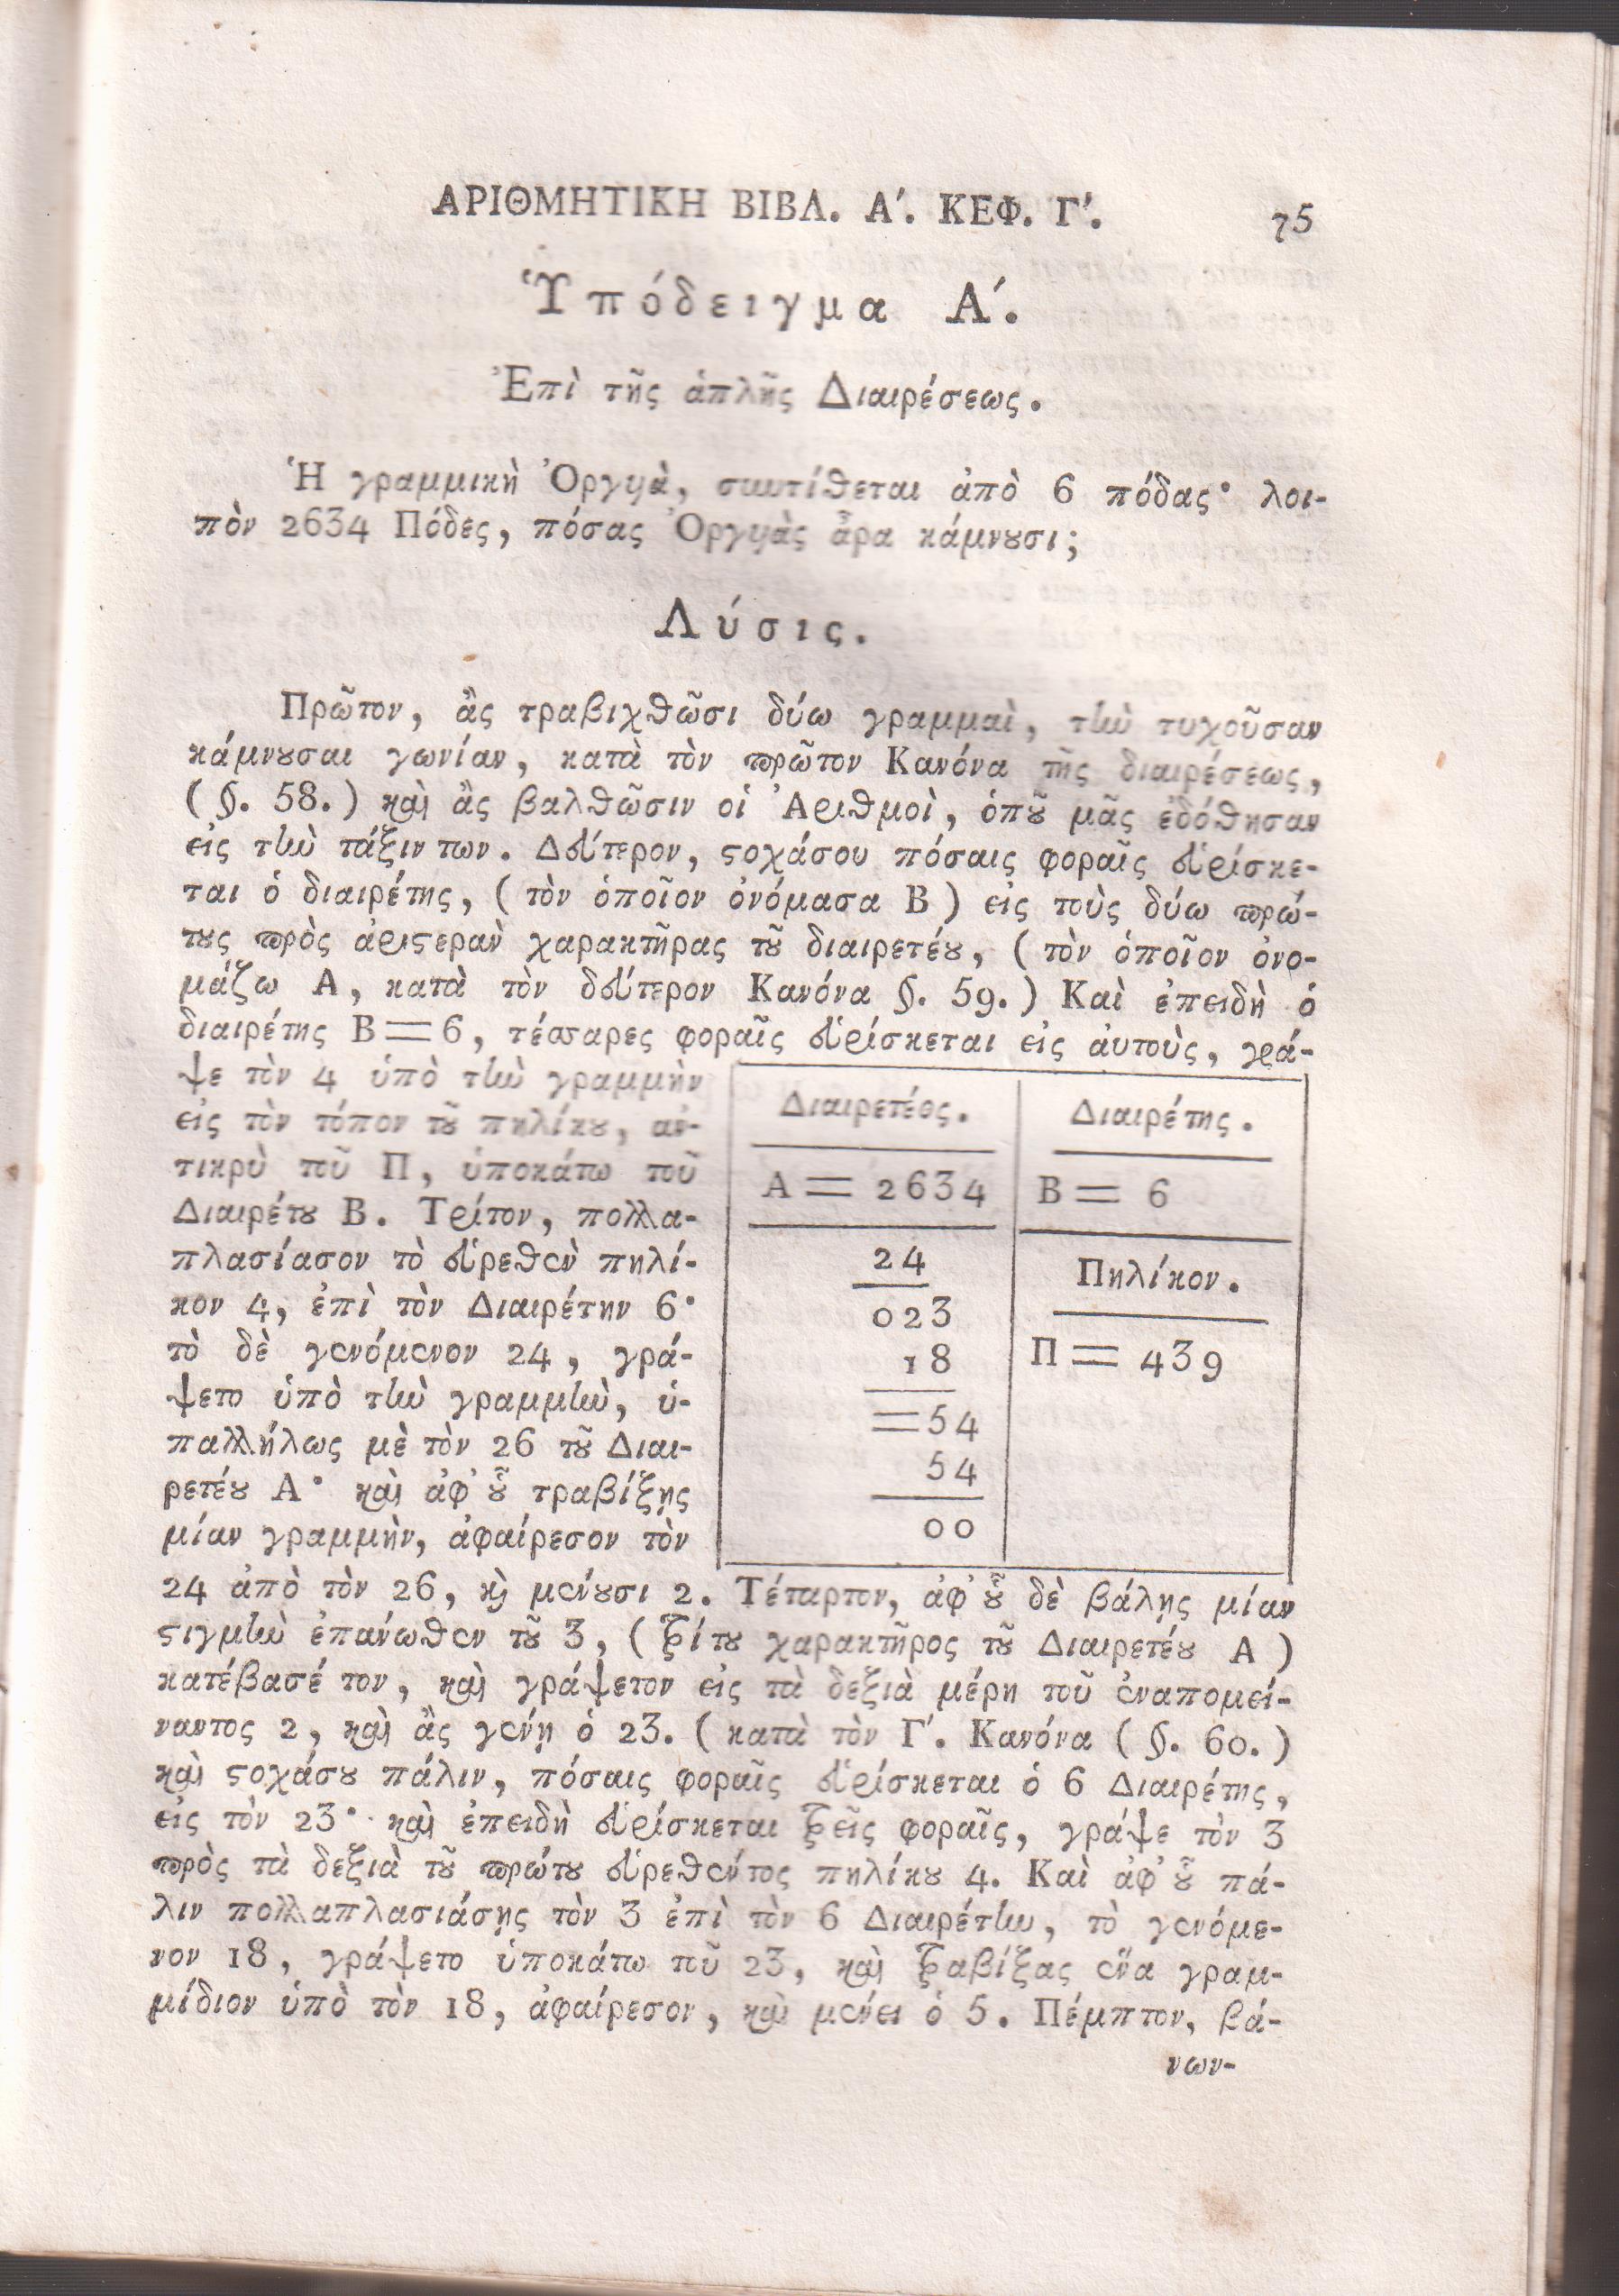 ΑΡΙΘΜΗΤΙΚΗ ΒΙΒΛ. Α΄. ΚΕΦ. Γ΄. 75
Ὑπόδειγμα Α΄.
Ἐπὶ τῆς ἁπλῆς Διαιρέσεως.
Ἡ γραμμικὴ Ὀργυιὰ, συντίθεται ἀπὸ 6 πόδας· λοι-
πὸν 2634 Πόδες, πόσας Ὀργυιὰς ἆρα κάμνȣσι;
Λύσις.
Πρῶτον, ἂς τραβιχθῶσι δύω γραμμαὶ, τὴν τυχοῦσαν
κάμνȣσαι γωνίαν, κατὰ τὸν πρῶτον Κανόνα τῆς διαιρέσεως,
(§. 58.) καὶ ἂς βαλθῶσιν οἱ Ἀριθμοὶ, ὁπȣ͂ μᾶς ἐδόθησαν
εἰς τὴν τάξιν των. Δεύτερον, ϛοχάσου πόσαις φοραῖς εὑρίσκε-
ται ὁ διαιρέτης, (τὸν ὁποῖον ὀνόμασα Β) εἰς τοὺς δύω πρώ-
τȣς πρὸς ἀριϛερὰν χαρακτῆρας τȣ͂ διαιρετέȣ, (τὸν ὁποῖον ὀνο-
μάζω Α, κατὰ τὸν δεύτερον Κανόνα §. 59.) Καὶ ἐπειδὴ ὁ
διαιρέτης Β = 6, τέσσαρες φοραῖς εὑρίσκεται εἰς αὐτοὺς, γρά-
ψε τὸν 4 ὑπὸ τὴν γραμμὴν
εἰς τὸν τόπον τȣ͂ πηλίκȣ, ἀν-
τικρὺ τοῦ Π, ὑποκάτω τοῦ
Διαιρέτȣ Β. Τρίτον, πολλα-
πλασίασον τὸ εὑρεθὲν πηλί-
κον 4, ἐπὶ τὸν Διαιρέτην 6·
τὸ δὲ γενόμενον 24, γρά-
ψετο ὑπὸ τὴν γραμμὴν, ὑ-
παλλήλως μὲ τὸν 26 τȣ͂ Διαι-
ρετέȣ Α· καὶ ἀφ᾿ ȣ͗͂ τραβίξῃς
μίαν γραμμὴν, ἀφαίρεσον τὸν
Διαιρετέος. Διαιρέτης.
Α = 2634 Β = 6
24 Πηλίκον.
023
18 Π = 439
=54
54
00
24 ἀπὸ τὸν 26, καὶ μένȣσι 2. Τέταρτον, ἀφ᾿ ȣ͗͂ δὲ βάλῃς μίαν
ϛιγμὴν ἐπάνωθεν τȣ͂ 3, (τρίτȣ χαρακτῆρος τȣ͂ Διαιρετέȣ Α)
κατέβασέ τον, καὶ γράψετον εἰς τὰ δεξιὰ μέρη τοῦ ἐναπομεί-
ναντος 2, καὶ ἂς γένῃ ὁ 23. (κατὰ τὸν Γ΄. Κανόνα (§. 60.)
καὶ ϛοχάσȣ πάλιν, πόσαις φοραῖς εὑρίσκεται ὁ 6 Διαιρέτης,
εἰς τὸν 23· καὶ ἐπειδὴ εὑρίσκεται τρεῖς φοραῖς, γράψε τὸν 3
πρὸς τὰ δεξιὰ τȣ͂ πρώτȣ εὑρεθέντος πηλίκȣ 4. Καὶ ἀφ᾿ ȣ͗͂ πά-
λιν πολλαπλασιάσῃς τὸν 3 ἐπὶ τὸν 6 Διαιρέτην, τὸ γενόμε-
νον 18, γράψετο ὑποκάτω τοῦ 23, καὶ τραβίξας ἕνα γραμ-
μίδιον ὑπὸ τὸν 18, ἀφαίρεσον, καὶ μένει ὁ 5. Πέμπτον, βά-
νων-